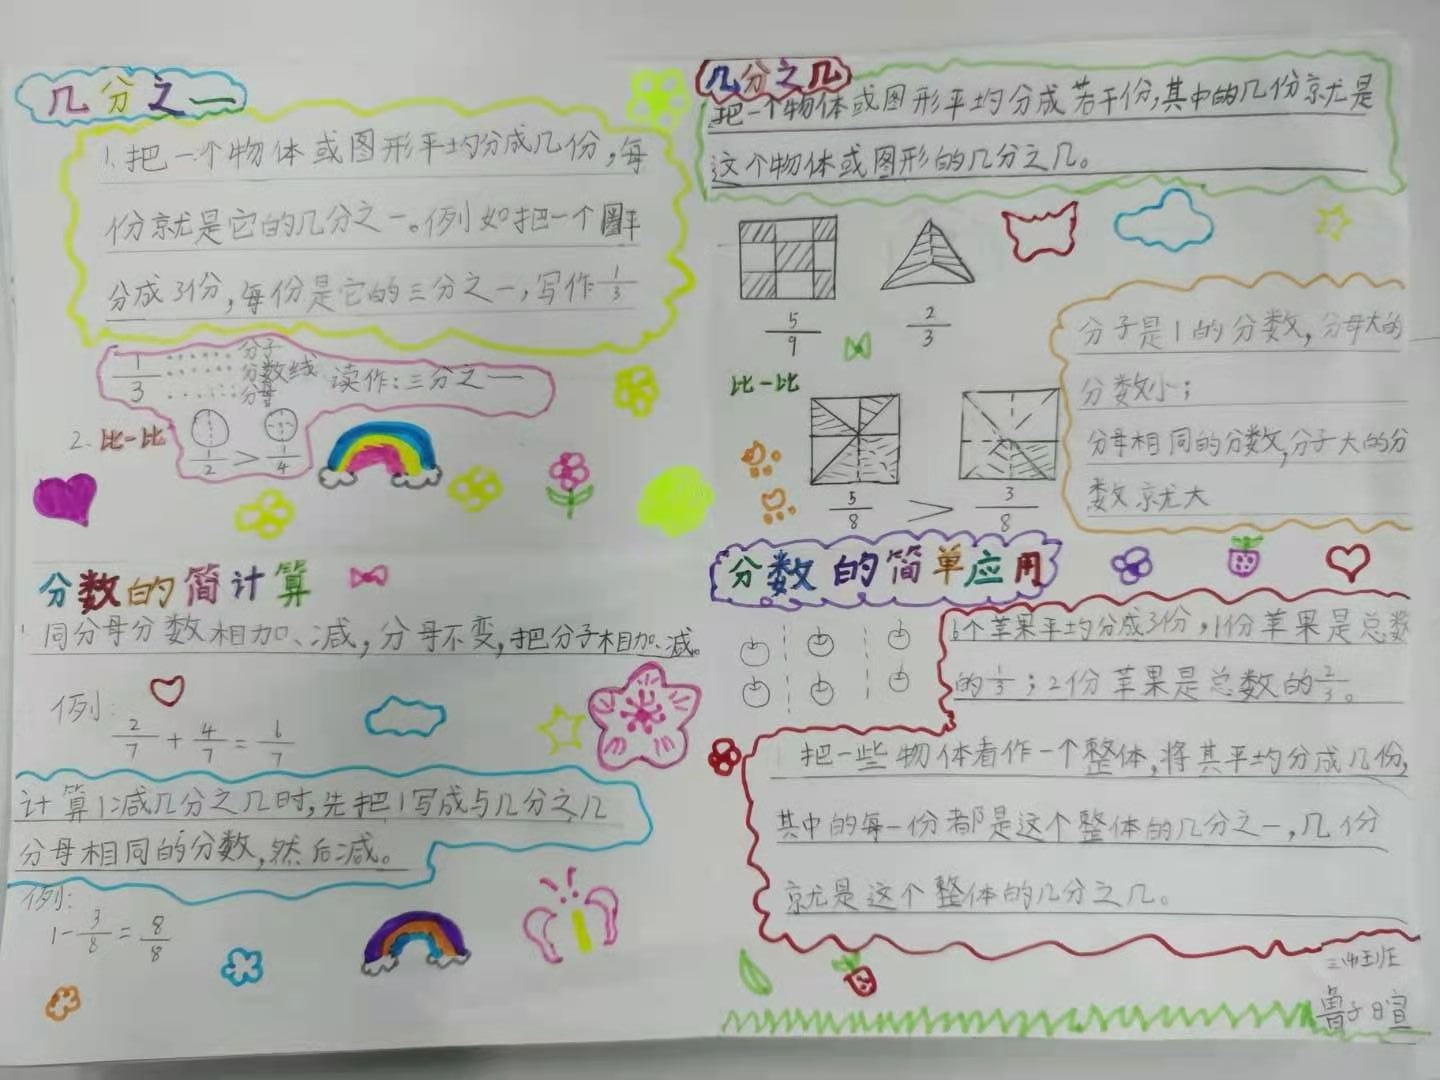 几分之一
1、把一个物体或图形平均分成几份,每
份就是它的几分之一。例如把一个圆平
分成3份,每份是它的三分之一,写作1/3
1/3 ……分子
……分数线
……分母
读作:三分之一
2.比一比
1/2 > 1/4
分数的简计算
同分母分数相加、减,分母不变,把分子相加、减。
例:
2/7 + 4/7 = 6/7
计算1减几分之几时,先把1写成与几分之几
分母相同的分数,然后减。
例:
1-3/8=8/8
几分之几
把一个物体或图形平均分成若干份,其中的几份就是
这个物体或图形的几分之几。
5/9
2/3
比一比
5/8 > 3/8
分子是1的分数,分母大的
分数小;
分母相同的分数,分子大的分
数就大
分数的简单应用
6个苹果平均分成3份,1份苹果是总数
的1/3;2份苹果是总数的2/3。
把一些物体看作一个整体,将其平均分成几份,
其中的每一份都是这个整体的几分之一,几份
就是这个整体的几分之几。
班
鲁子暄